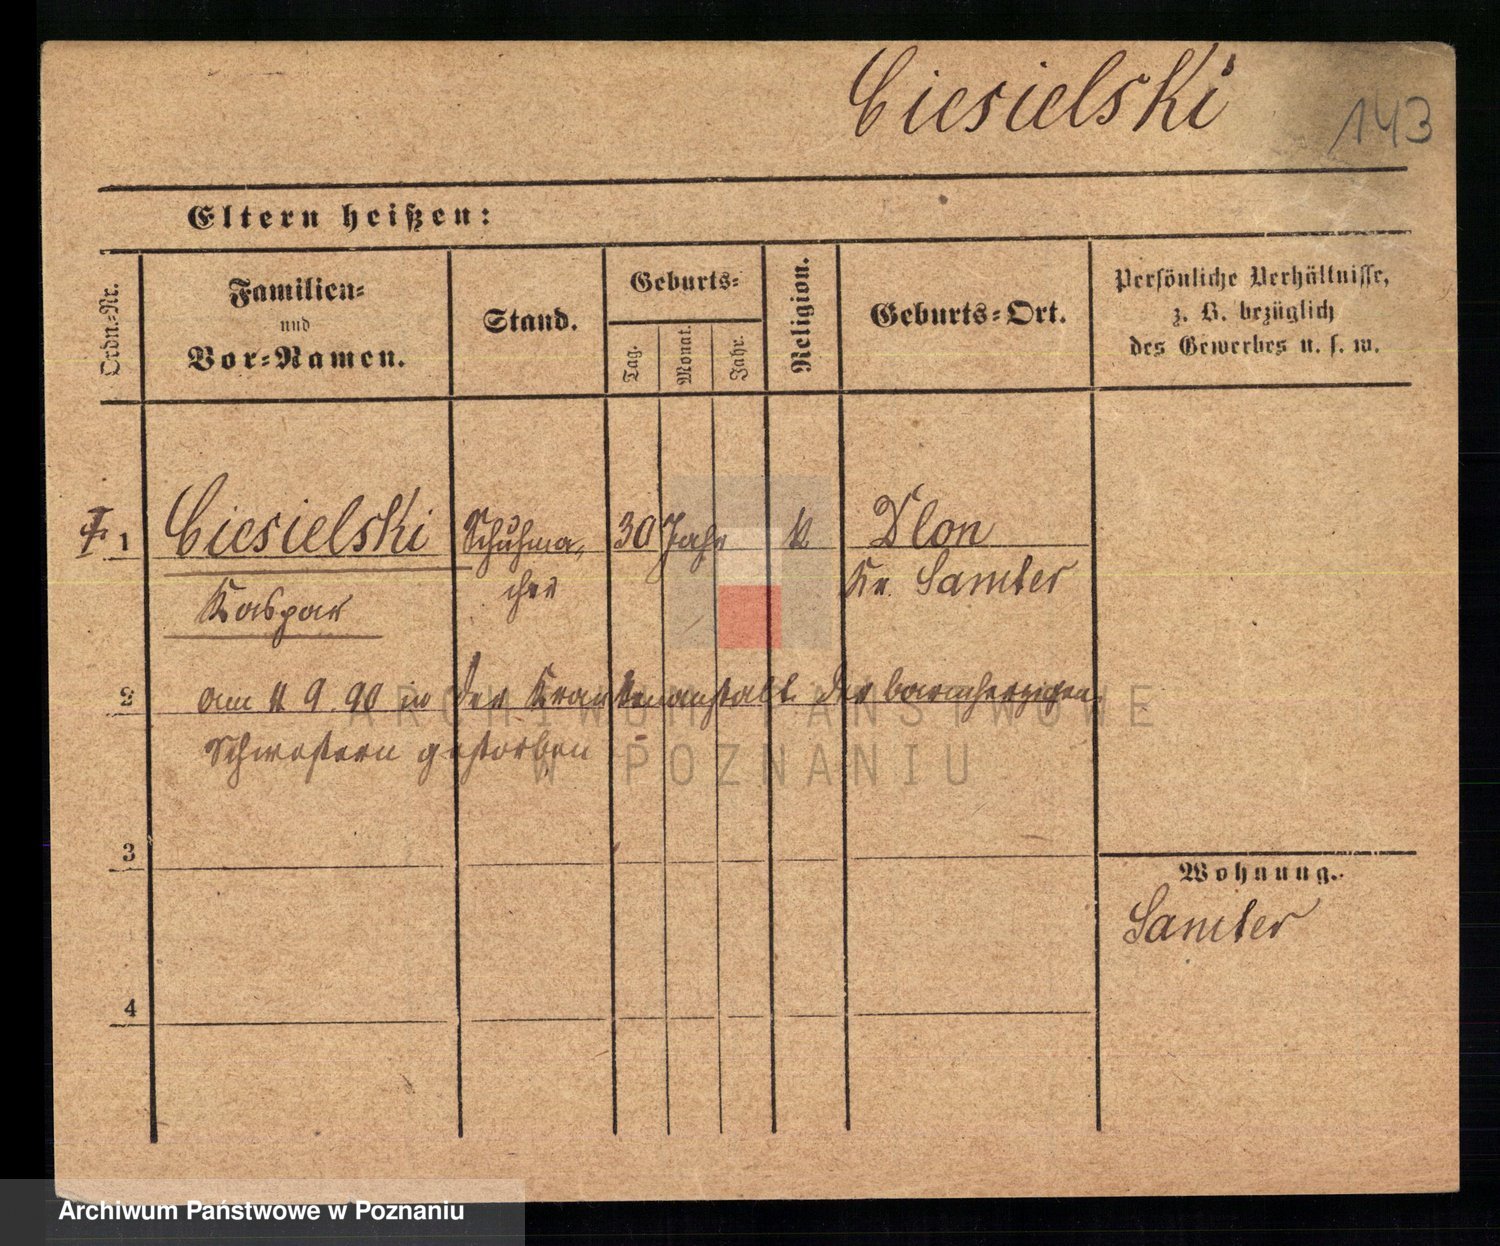 Ciesielski
143
Eltern heißen:
Ordn.-Nr.
Familien-
und
Vor-Namen.
Stand.
Geburts-
Tag.
Monat.
Jahr.
Religion.
Geburts-Ort.
Persönliche Verhältnisse,
z. B. bezüglich
des Gewerbes u. s. w.
1 Ciesielski Schuhma- 30 Jahr k
Kaspar cher Kr. Samter
2 am 11 9. 90 in der Krankenanstalt der barmherzigen
Schwestern gestorben
3
4
Wohnung.
Samter
ARCHIWUM PAŃSTWOWE
W POZNANIU
Archiwum Państwowe w Poznaniu